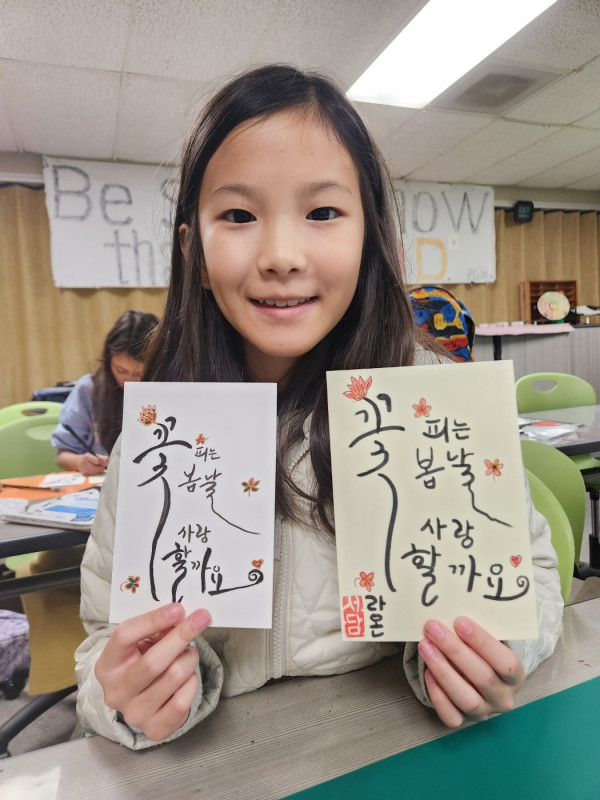 Be
꽃
피는
봄날
사랑
할까요
꽃
피는
봄날
사랑
할까요
라온
서담